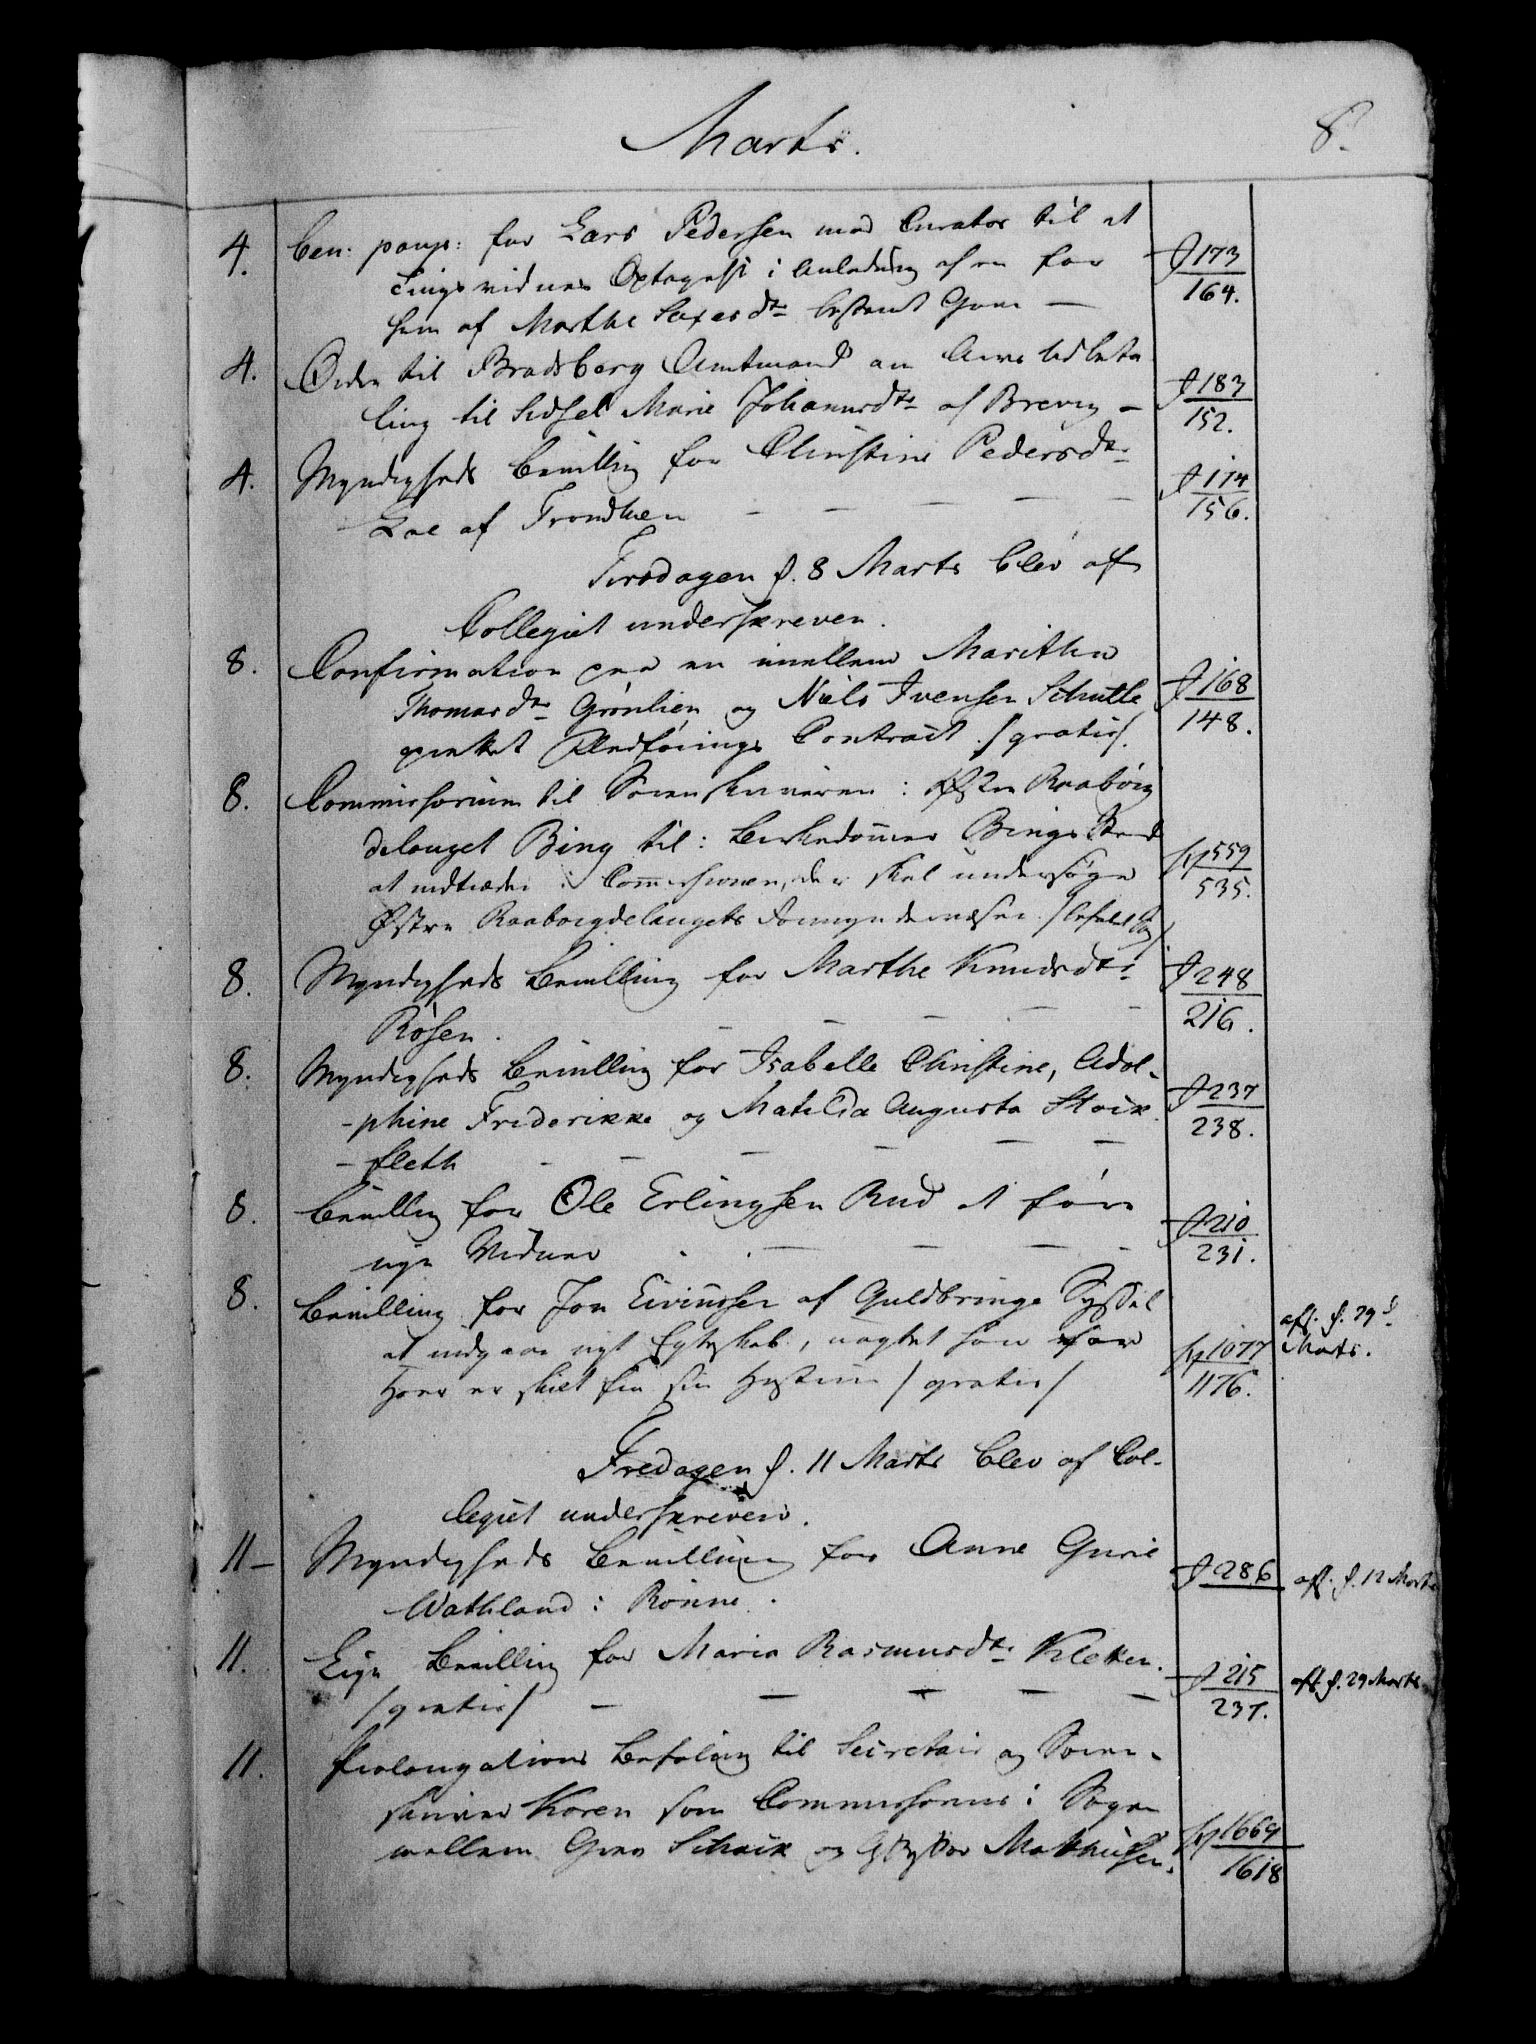 Marts.
8.
4. Ben: paup: for Lars Pedersen med Curator til et
Tingsvidnes Optagelse i Anledning af en for
ham af Marthe Saxesdtr bestemt Gave —
J 173
164.
4. Ordre til Bradsberg Amtmand om Arve Udbeta
ling til Sidsel Marie Johannesdtr af Brevig —
J 183
152.
4. Myndigheds Bevilling for Christine Pedersdtr
Lae af Trondhen — — — —
J 114
156.
Tirsdagen d. 8 Marts blev af
Collegiet underskreven.
8. Confirmation paa en imellem Marithe
Thomasdtr Grønlien og Niels Ivensen Schulle
oprettet Contract /gratis/.
J 168
148.
8. Commissorium til Sorenskriveren i Østre Raabøig
delauget Bing til i Birkedommer Bings Sted
at indtræde i Commissionen, der skal undersøge
Østre Raaboigdelaugets Formyndervæsen
559
535.
8. Myndigheds Bevilling for Marthe Knudsdtr
Rosen. — — — —
J 248
216.
8. Myndigheds Bevilling for Isabelle Christine, Adol-
-phine Friderikke og Matilda Augusta Stock
-fleth — — — — —
J 237
238.
8. Bevilling for Ole Erlingsen Rud at føre
nye Vidner — — — —
J 210
231.
8. Bevilling for Jon Eivindsen af Guldbringe Syssel
at indgaae nyt Egteskab, uagtet han for
Hoer er skilt fra sin Hustrue /gratis/
1077
1176.
aff. d. 29d
Marts.
Fredagen d. 11 Marts blev af Col-
legiet underskreven.
11 — Myndigheds Bevilling for Anne Gurie
Wathland i Rønne.
J 286
aff. d. 12 Marts
11. Eegte Bevilling for Maria Rasmusdtr Kletten.
/gratis/ — — — — —
J 215
237.
aff. d. 29 Marts
11. Prolongations Befaling til Secretair og Soren-
skriver Koren som Commissorius i Sagen
mellem Grev Schack og Mathiesen.
1669
1618